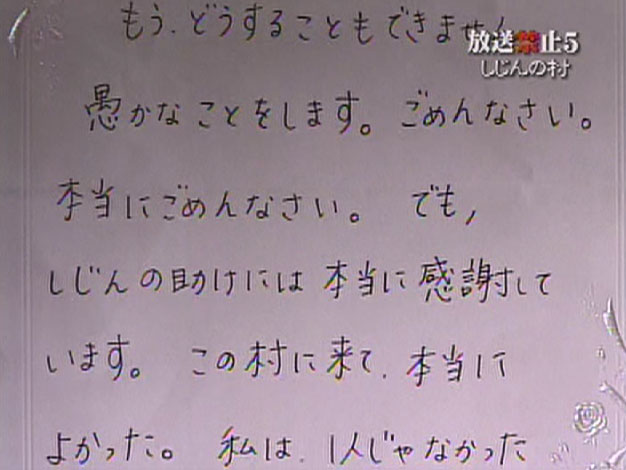 もう、どうすることもできません
放送禁止5
しじんの村
愚かなことをします。ごめんなさい。
本当にごめんなさい。 でも,
しじんの助けには 本当に 感謝して
います。 この村に来て、本当に
よかった。 私は、1人じゃなかった